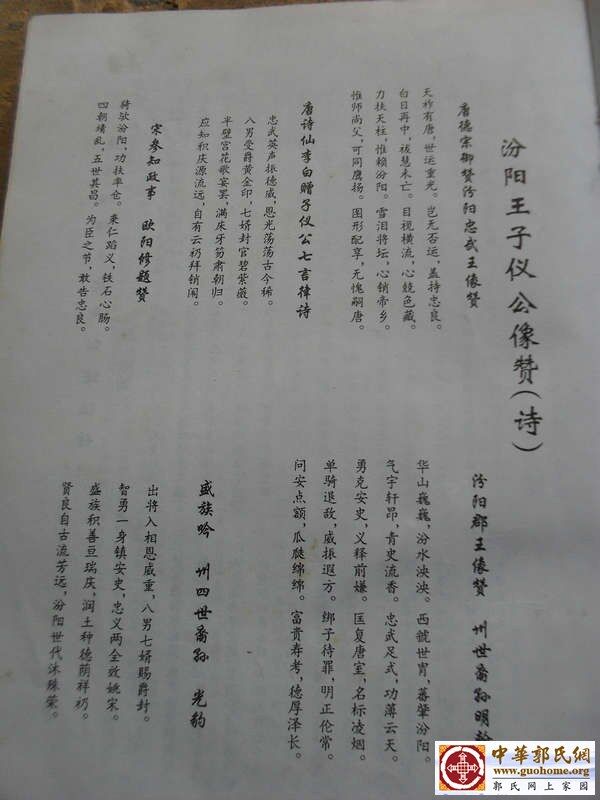 汾阳王子仪公像赞(诗)
唐德宗御赞汾阳忠武王像赞
天祚有唐,世运重光。岂无否运,盖持忠良。
白日再中,祓慧未亡。目视横流,心兢色藏。
力扶天柱,惟赖汾阳。雪泪将坛,心销帝乡。
惟师尚父,可同鹰扬。图形配享,无愧嗣唐。
唐诗仙李白赠子仪公七言律诗
忠武英声振德威,恩光荡荡古今稀。
八男受爵黄金印,七婿封官碧紫薇。
半壁宫花歌宴罢,满床牙笏肃朝归。
应知积庆源流远,自有云礽拜锁闱。
宋参知政事 欧阳修题赞
猗欤汾阳,功扶率仓。秉仁蹈义,铁石心肠。
四朝靖乱,五世其昌。为臣之节,敢告忠良。
汾阳郡王像赞 卅世裔孙明
华山巍巍,汾水泱泱。西虢世胄,蕃肇汾阳。
气宇轩昂,青史流香。忠武足式,功薄云天。
勇克安史,义释前嫌。匡复唐室,名标凌烟。
单骑退敌,威振遐方。绑子待罪,明正伦常。
问安点额,瓜瓞绵绵。富贵寿考,德厚泽长。
盛族吟 卅四世裔孙 光豹
出将入相恩威重,八男七婿赐爵封。
智勇一身镇安史,忠义两全效姚宋。
盛族积善豆瑞庆,润土种德荫祥礽。
贤良自古流芳远,汾阳世代沐殊荣。
中華郭氏網
www.guohome.org
郭氏网上家园